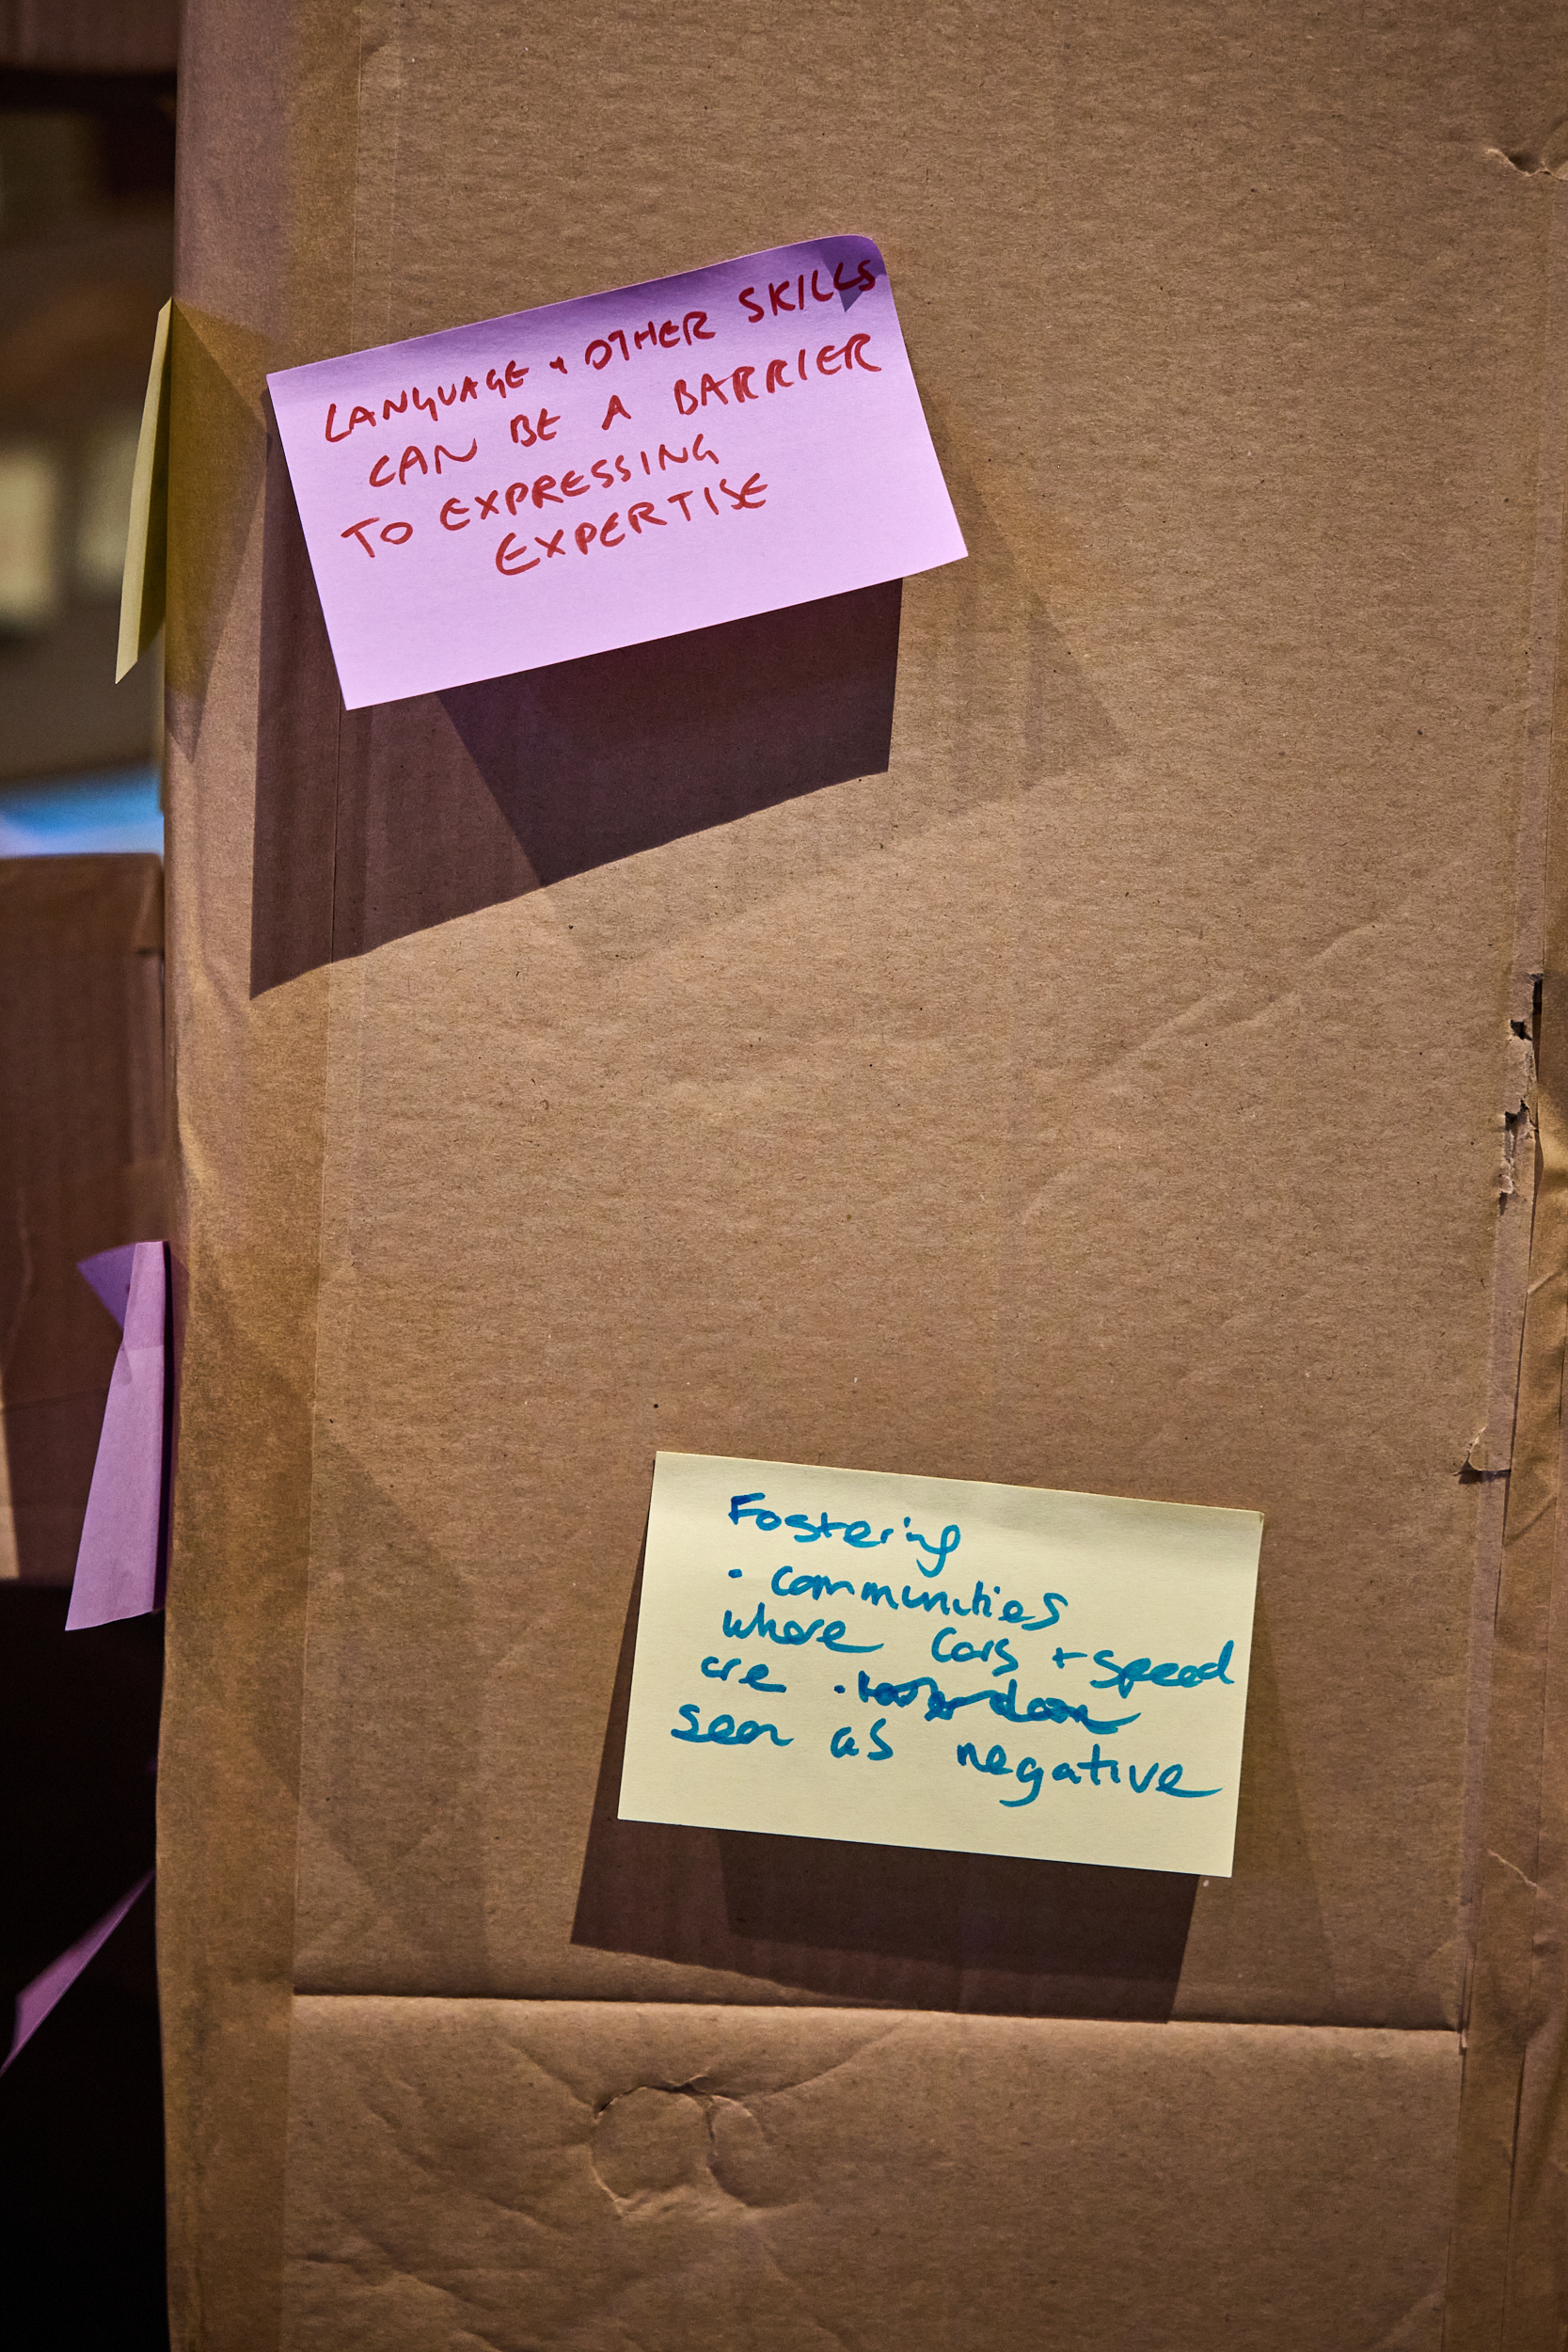 LANGUAGE + OTHER SKILLS
CAN BE A BARRIER
TO EXPRESSING
EXPERTISE
Fostering
· communities
where Cars + speed
are
seen as negative